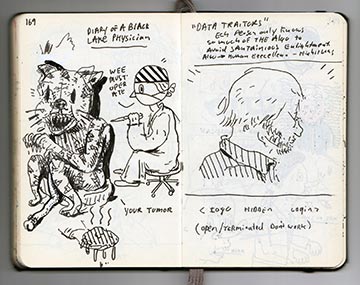 169
DIARY OF A BLACK
LAKE PHYSICIAN
WEE
MUST
OPER
ATE
YOUR TUMOR
"DATA TRAITORS"
Ech Person only knows
so much of the Algo to
Avoid
Human Excellence
< LOGO HIDDEN LOGIN >
(open/terminated Don't work)